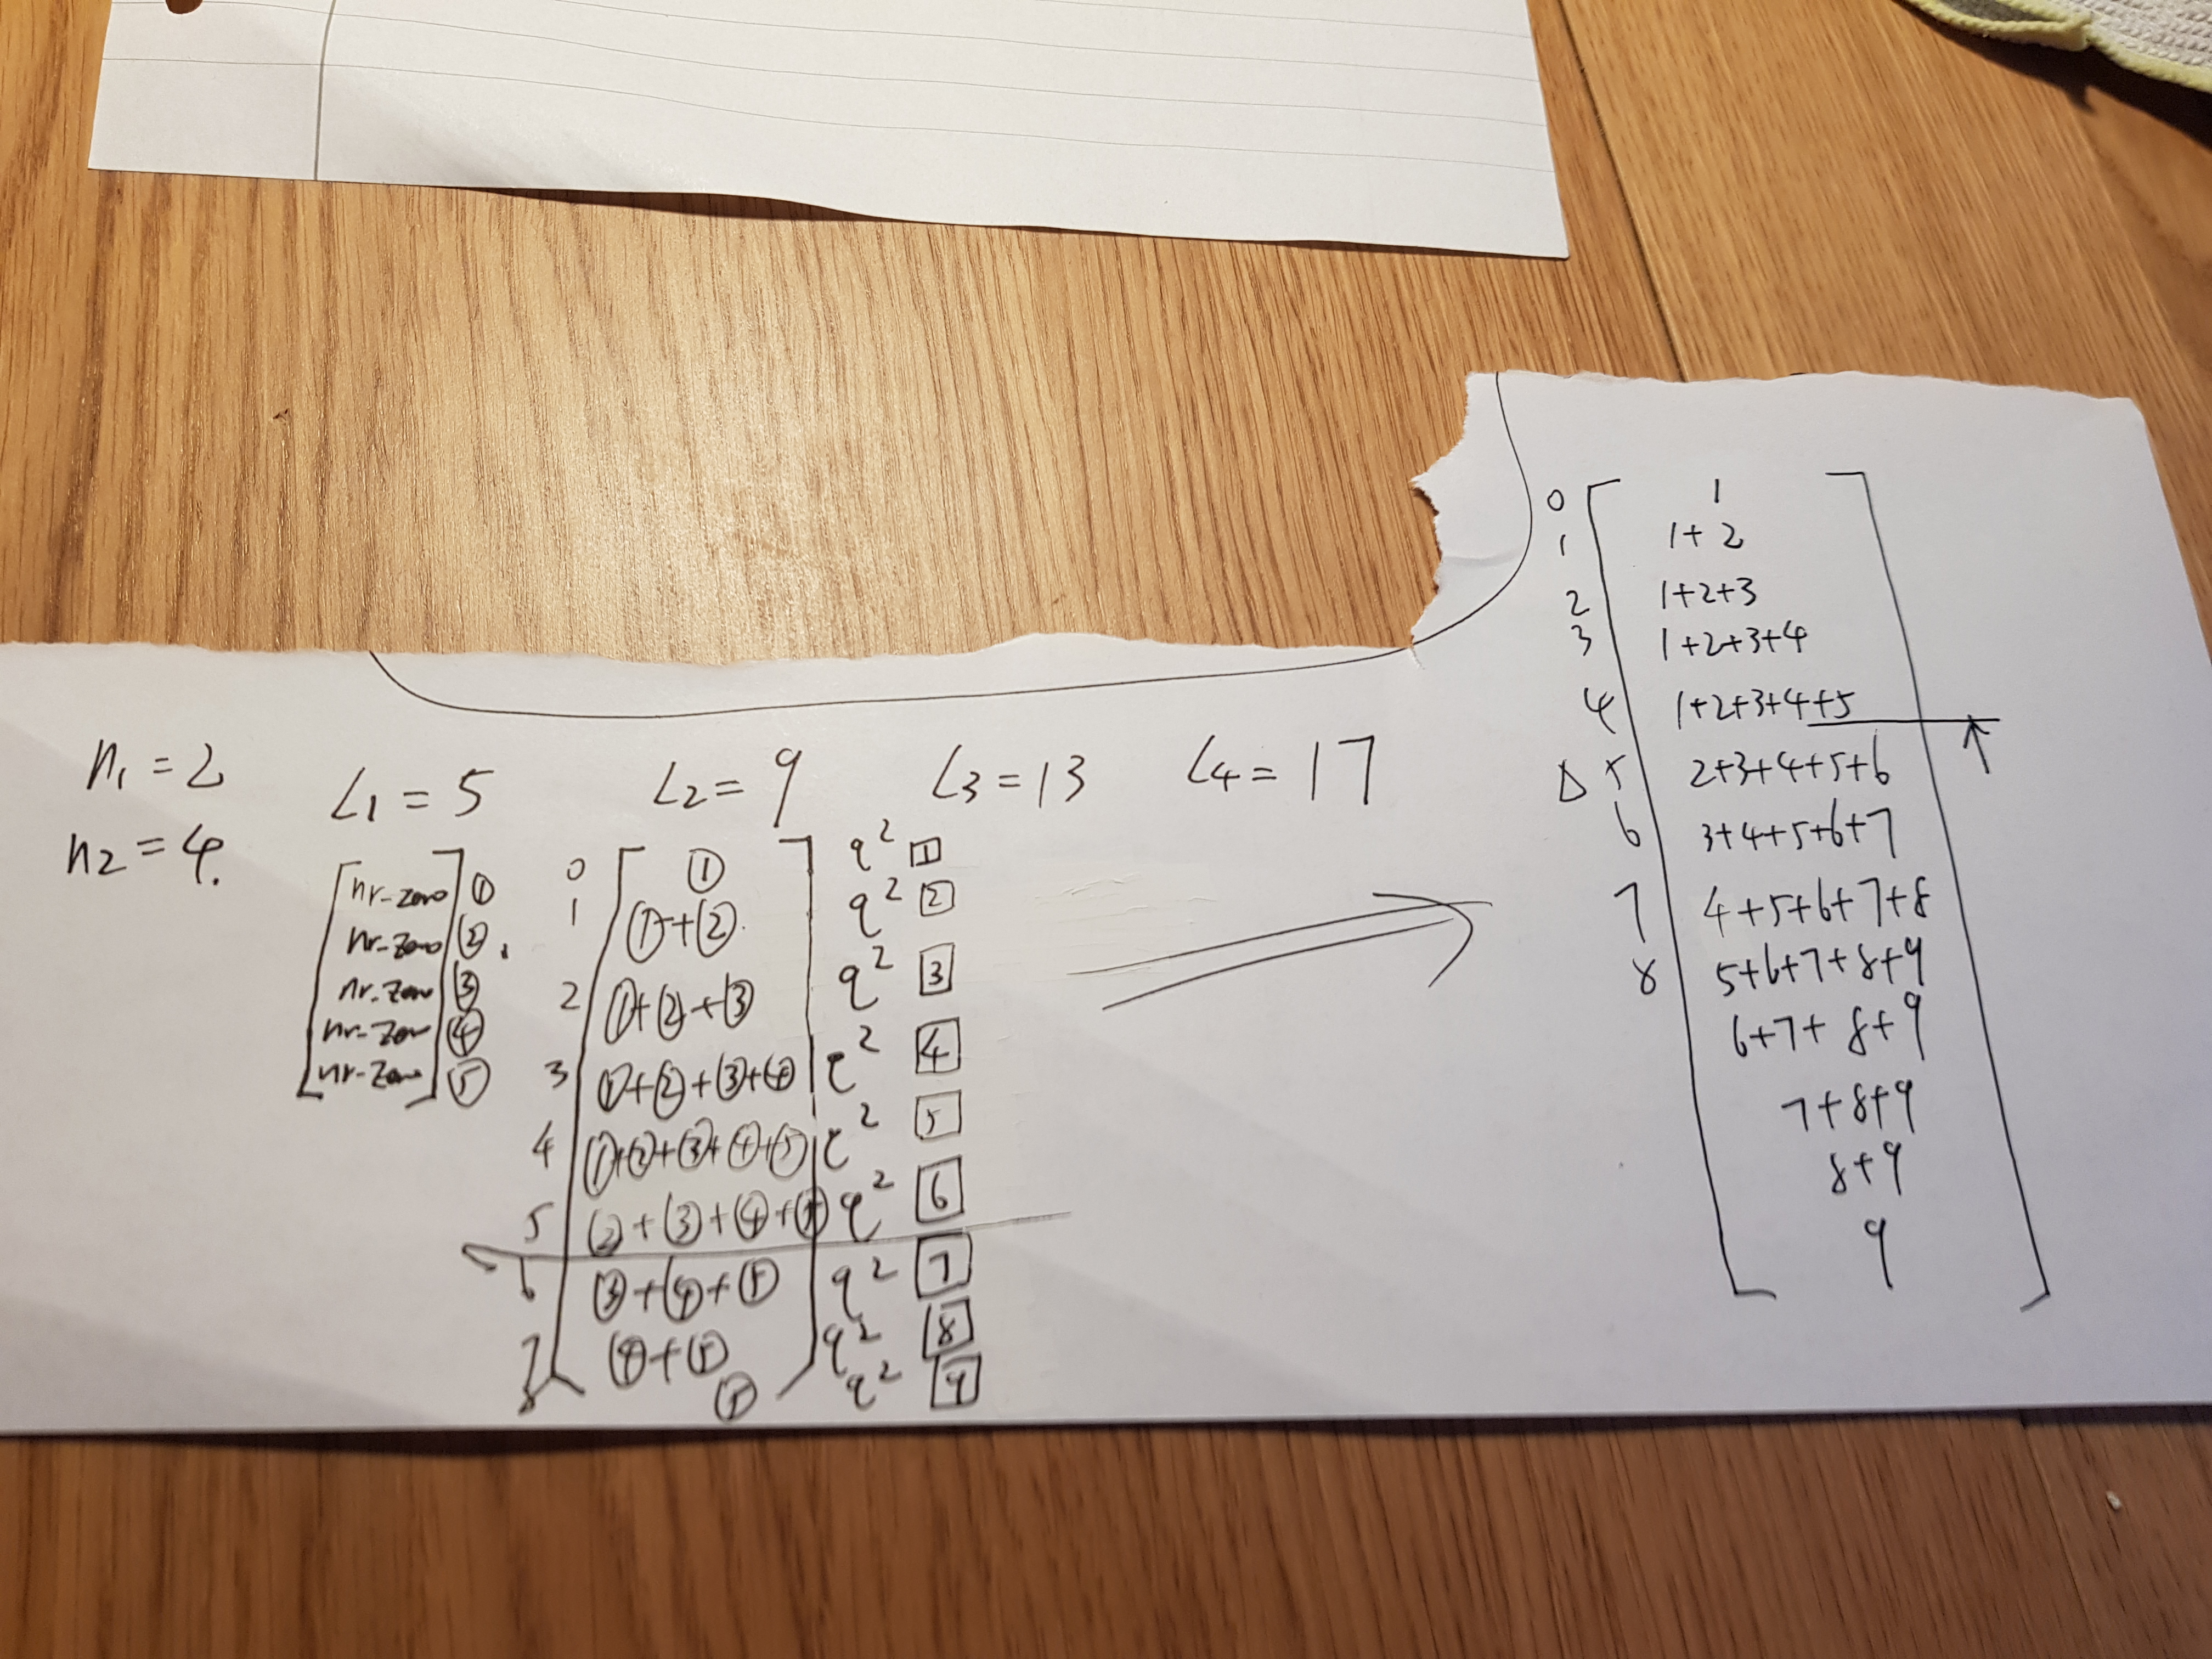 n₁ = 2
n₂ = 4.
L₁ = 5
L₂ = 9
L₃ = 13
L₄ = 17
nr-zero ①
nr-zero ②.
nr-zero ③
nr-zero ④
nr-zero ⑤
0 ① q² 1
1 ①+②. q² 2
2 ①+②+③ q² 3
3 ①+②+③+④ q² 4
4 ①+②+③+④+⑤ q² 5
5 ②+③+④+⑤ q² 6
6 ③+④+⑤ q² 7
7 ④+⑤ q² 8
8 ⑤ q² 9
0 1
1 1+2
2 1+2+3
3 1+2+3+4
4 1+2+3+4+5
Δ 5 2+3+4+5+6
6 3+4+5+6+7
7 4+5+6+7+8
8 5+6+7+8+9
6+7+8+9
7+8+9
8+9
9